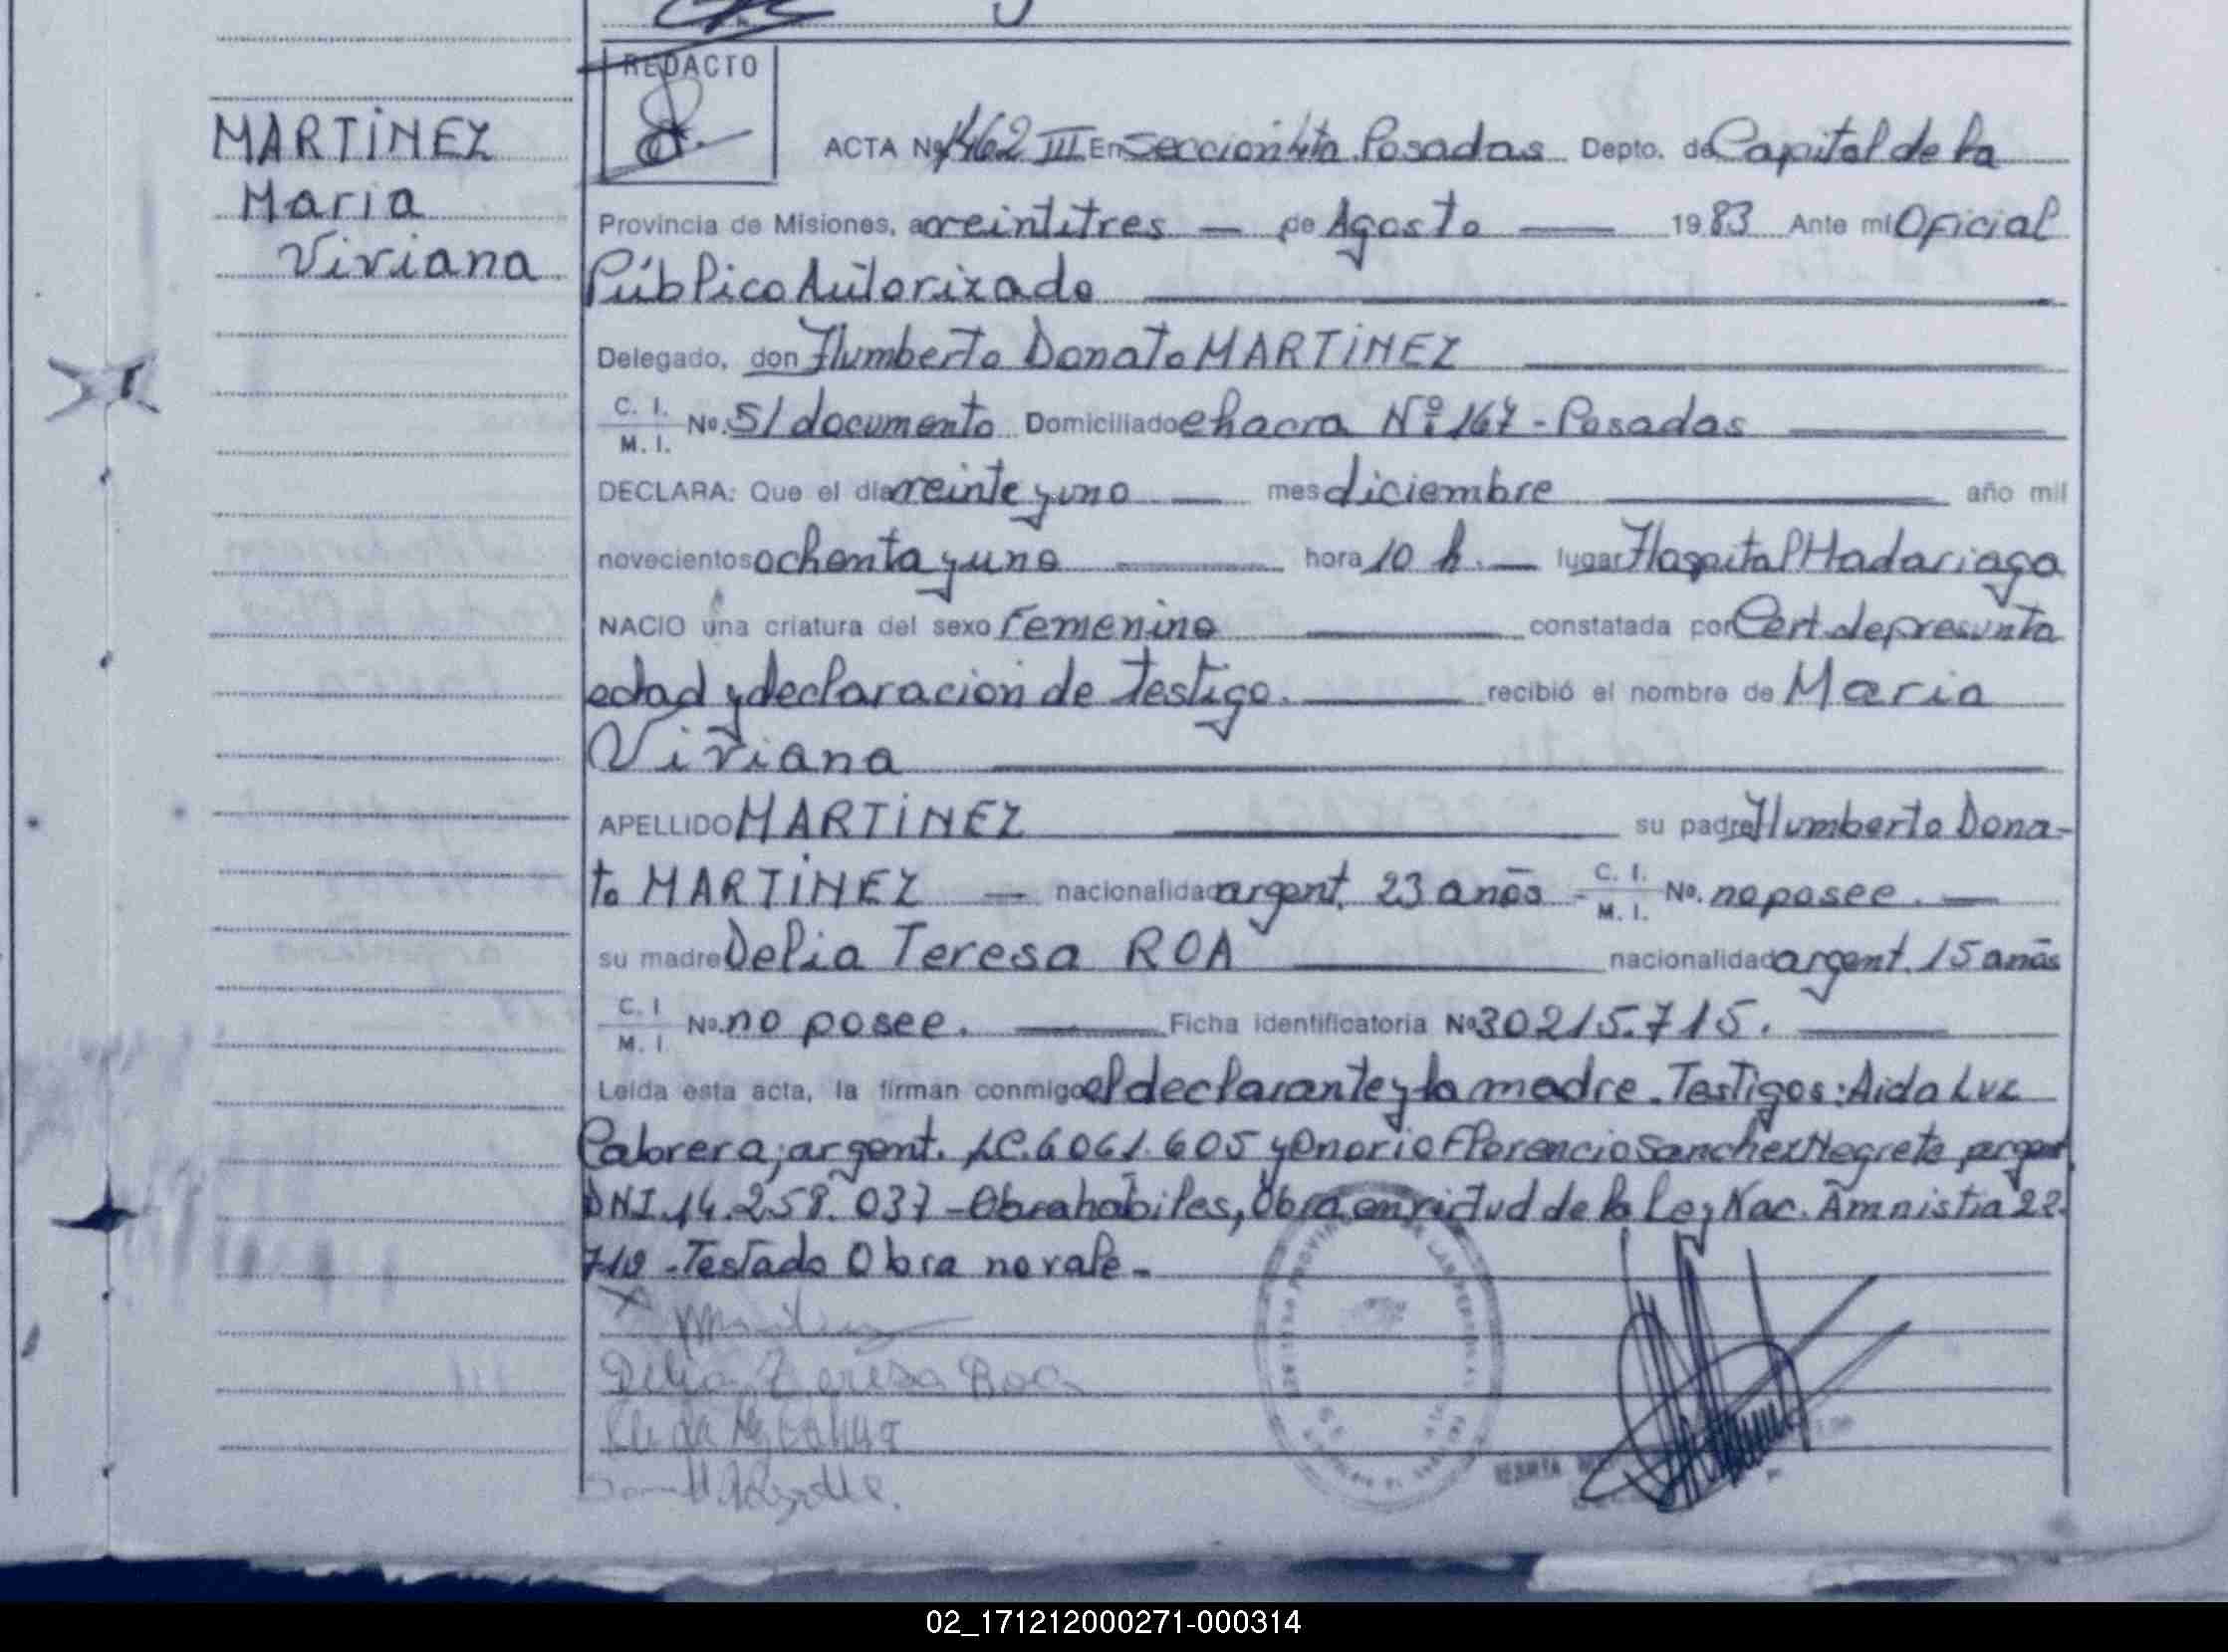 REDACTO
MARTINEZ
Maria
Viviana
ACTA Nº 1462 III En Seccion 4ta Posadas Depto. de Capital de la
Provincia de Misiones, a veintitres — de Agosto — 1983 Ante mi Oficial
Público Autorizado
Delegado, don Humberto Donato MARTINEZ
C. I. M. I. No. S/documento Domiciliado chacra Nº 167 - Posadas
DECLARA: Que el dia veinte y uno — mes diciembre año mil
novecientos ochenta y uno hora 10 h. — lugar Hospital Madariaga
NACIO una criatura del sexo Femenino constatada por Cert. de presunta
edad y declaracion de testigo. recibió el nombre de Maria
Viviana
APELLIDO MARTINEZ su padre Humberto Dona-
to MARTINEZ — nacionalidad argent. 23 años - C. I. M. I. No. no posee. —
su madre Delia Teresa ROA nacionalidad argent. 15 años
C. I M. I. No. no posee. Ficha identificatoria Nº 30215.715.
Leida esta acta, la firman conmigo el declarante y la madre. Testigos: Aida Luz
Cabrera, argent. LC. 6061.605 y Onorio Florencio Sanchez Negrete argent.
DNI. 14.258.037 - Obra habiles, Obra en virtud de la Ley Nac. Amnistia 22.
710 - Testado Obra no vale -
Delia Teresa Roa
02_171212000271-000314